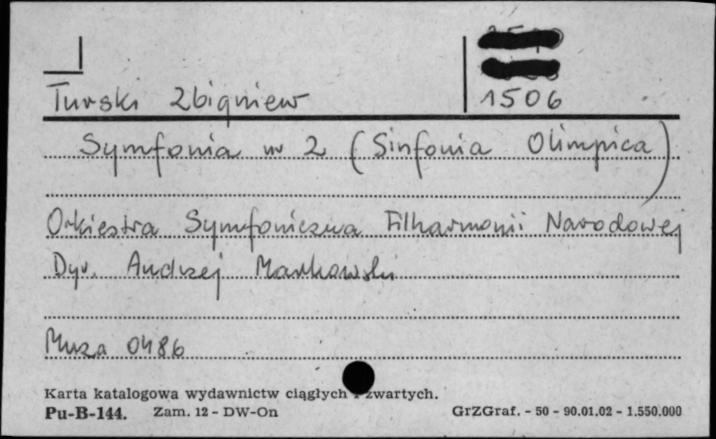 Turski Zbigniew
1506
Symfonia nr 2 (Sinfonia Olimpica)
Orkiestra Symfoniczna Filharmonii Narodowej
Dyr. Andrzej Markowski
Muza 0486
Karta katalogowa wydawnictw ciągłych i zwartych.
Pu-B-144. Zam. 12 - DW-On GrZGraf. - 50 - 90.01.02 - 1.550.000